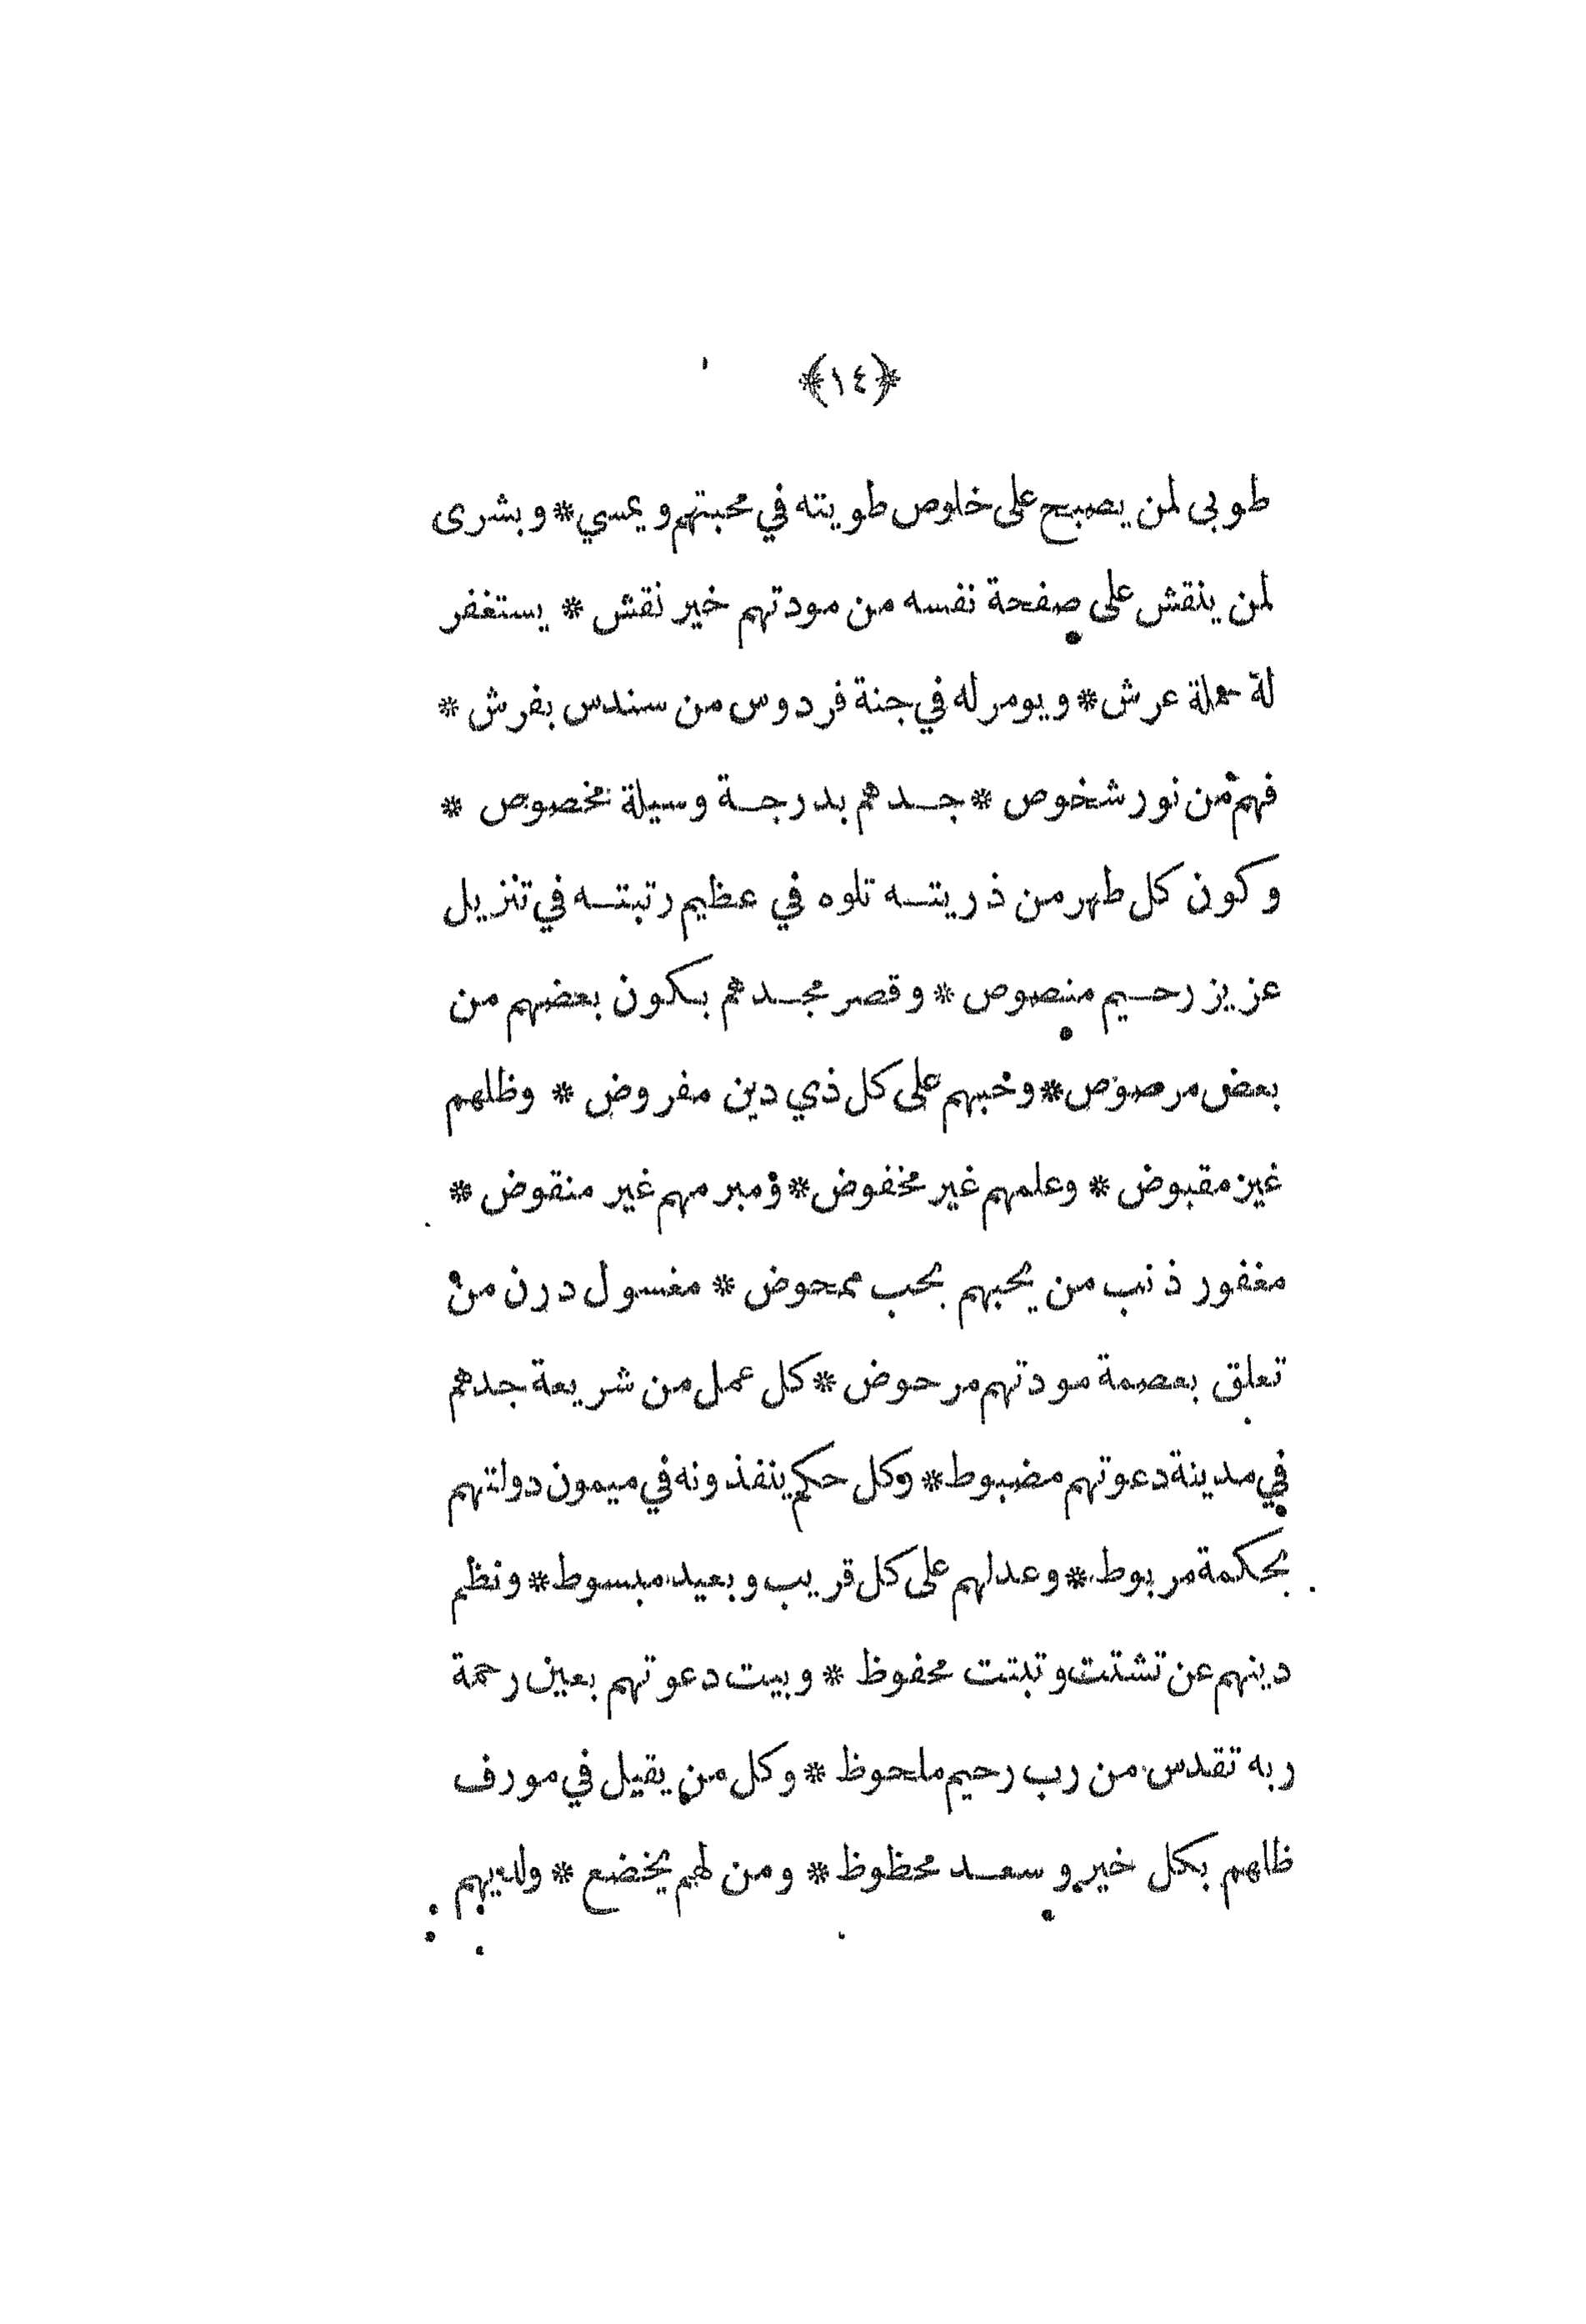 ﴿١٤﴾
طوبى لمن يصبح على خلوص طويته في محبتهم ويمسي * وبشرى
لمن ينقش على صفحة نفسه من مودتهم خير نقش * يستغفر
لة حملة عرش * ويومر له في جنة فردوس من سندس بفرش *
فهم من نور شخوص * جدهم بدرجة وسيلة مخصوص *
وكون كل طهر من ذريته تلوه في عظيم رتبته في تنزيل
عزيز رحيم منصوص * وقصر مجدهم بكون بعضهم من
بعض مرصوص * وحبهم على كل ذي دين مفروض * وظلهم
غير مقبوض * وعلمهم غير مخفوض * ومبرمهم غير منقوض *
مغفور ذنب من يحبهم بحب ممحوض * مغسول درن من
تعلق بعصمة مودتهم مرحوض * كل عمل من شريعة جدهم
في مدينة دعوتهم مضبوط * وكل حكم ينفذونه في ميمون دولتهم
بحكمة مربوط * وعدلهم على كل قريب وبعيد مبسوط * ونظم
دينهم عن تشتت وتبتت محفوظ * وبيت دعوتهم بعين رحمة
ربه تقدس من رب رحيم ملحوظ * وكل من يقيل في مورف
ظلهم بكل خير وسعد محظوظ * ومن لهم يخضع * ولديهم